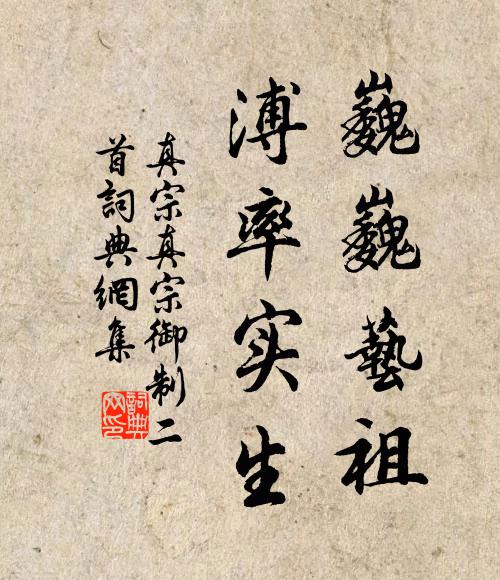 巍巍藝祖
溥率实生
真宗真宗御制二
首詞典網集
詞典
网印